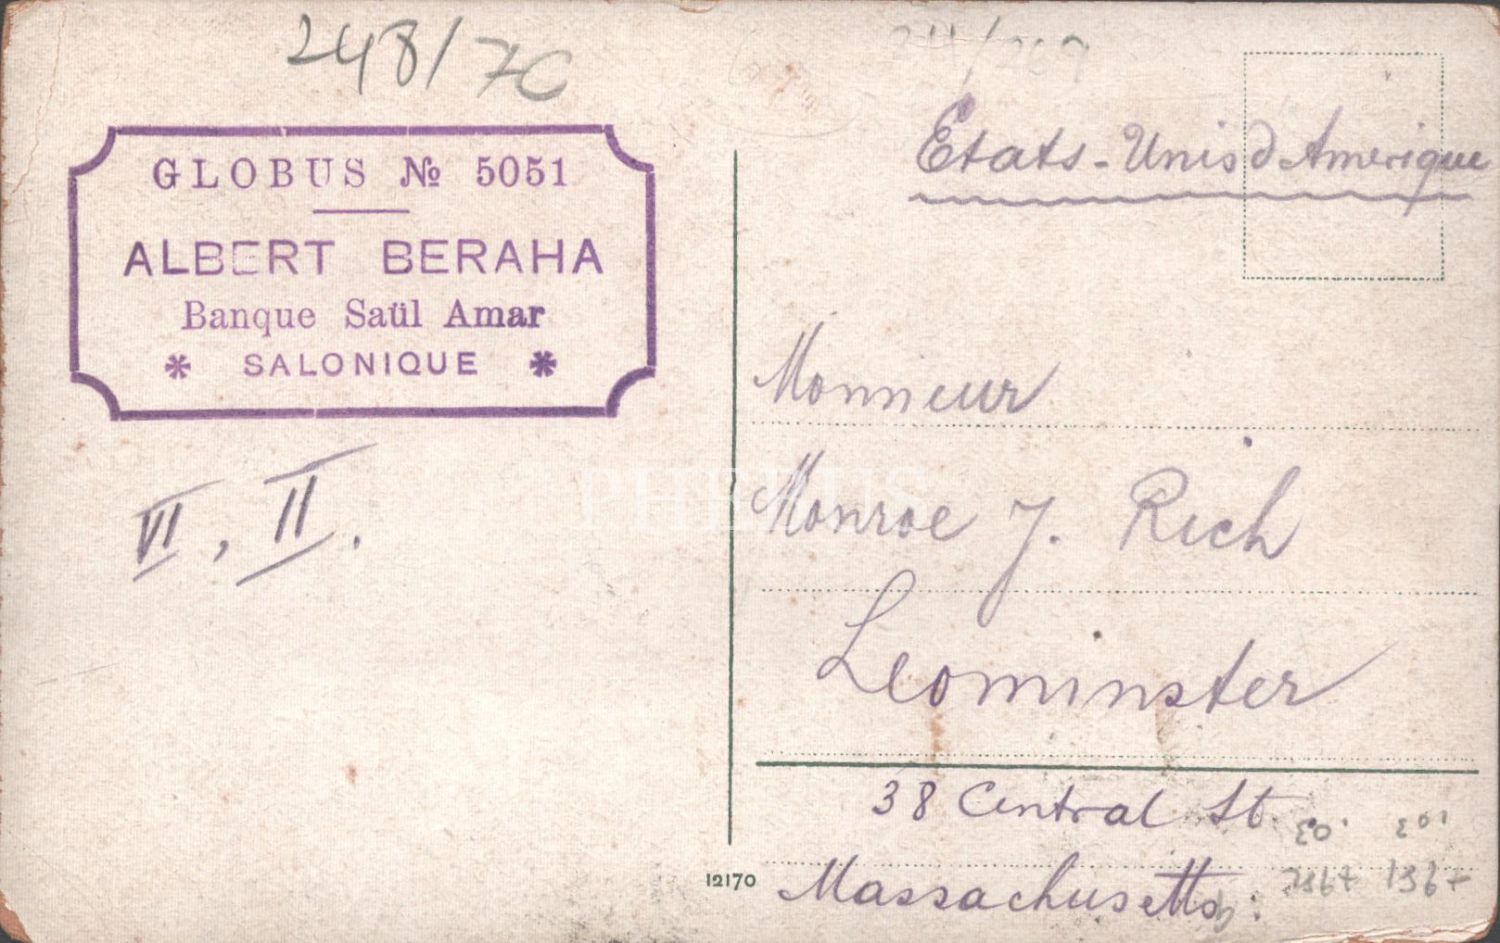 248/70
GLOBUS № 5051
ALBERT BERAHA
Banque Saül Amar
* SALONIQUE *
VI, II.
Etats-Unis d'Amerique
Monsieur
Monroe J. Rich
Leominster
38 Central St.
Massachusetts
12170
PHEBUS